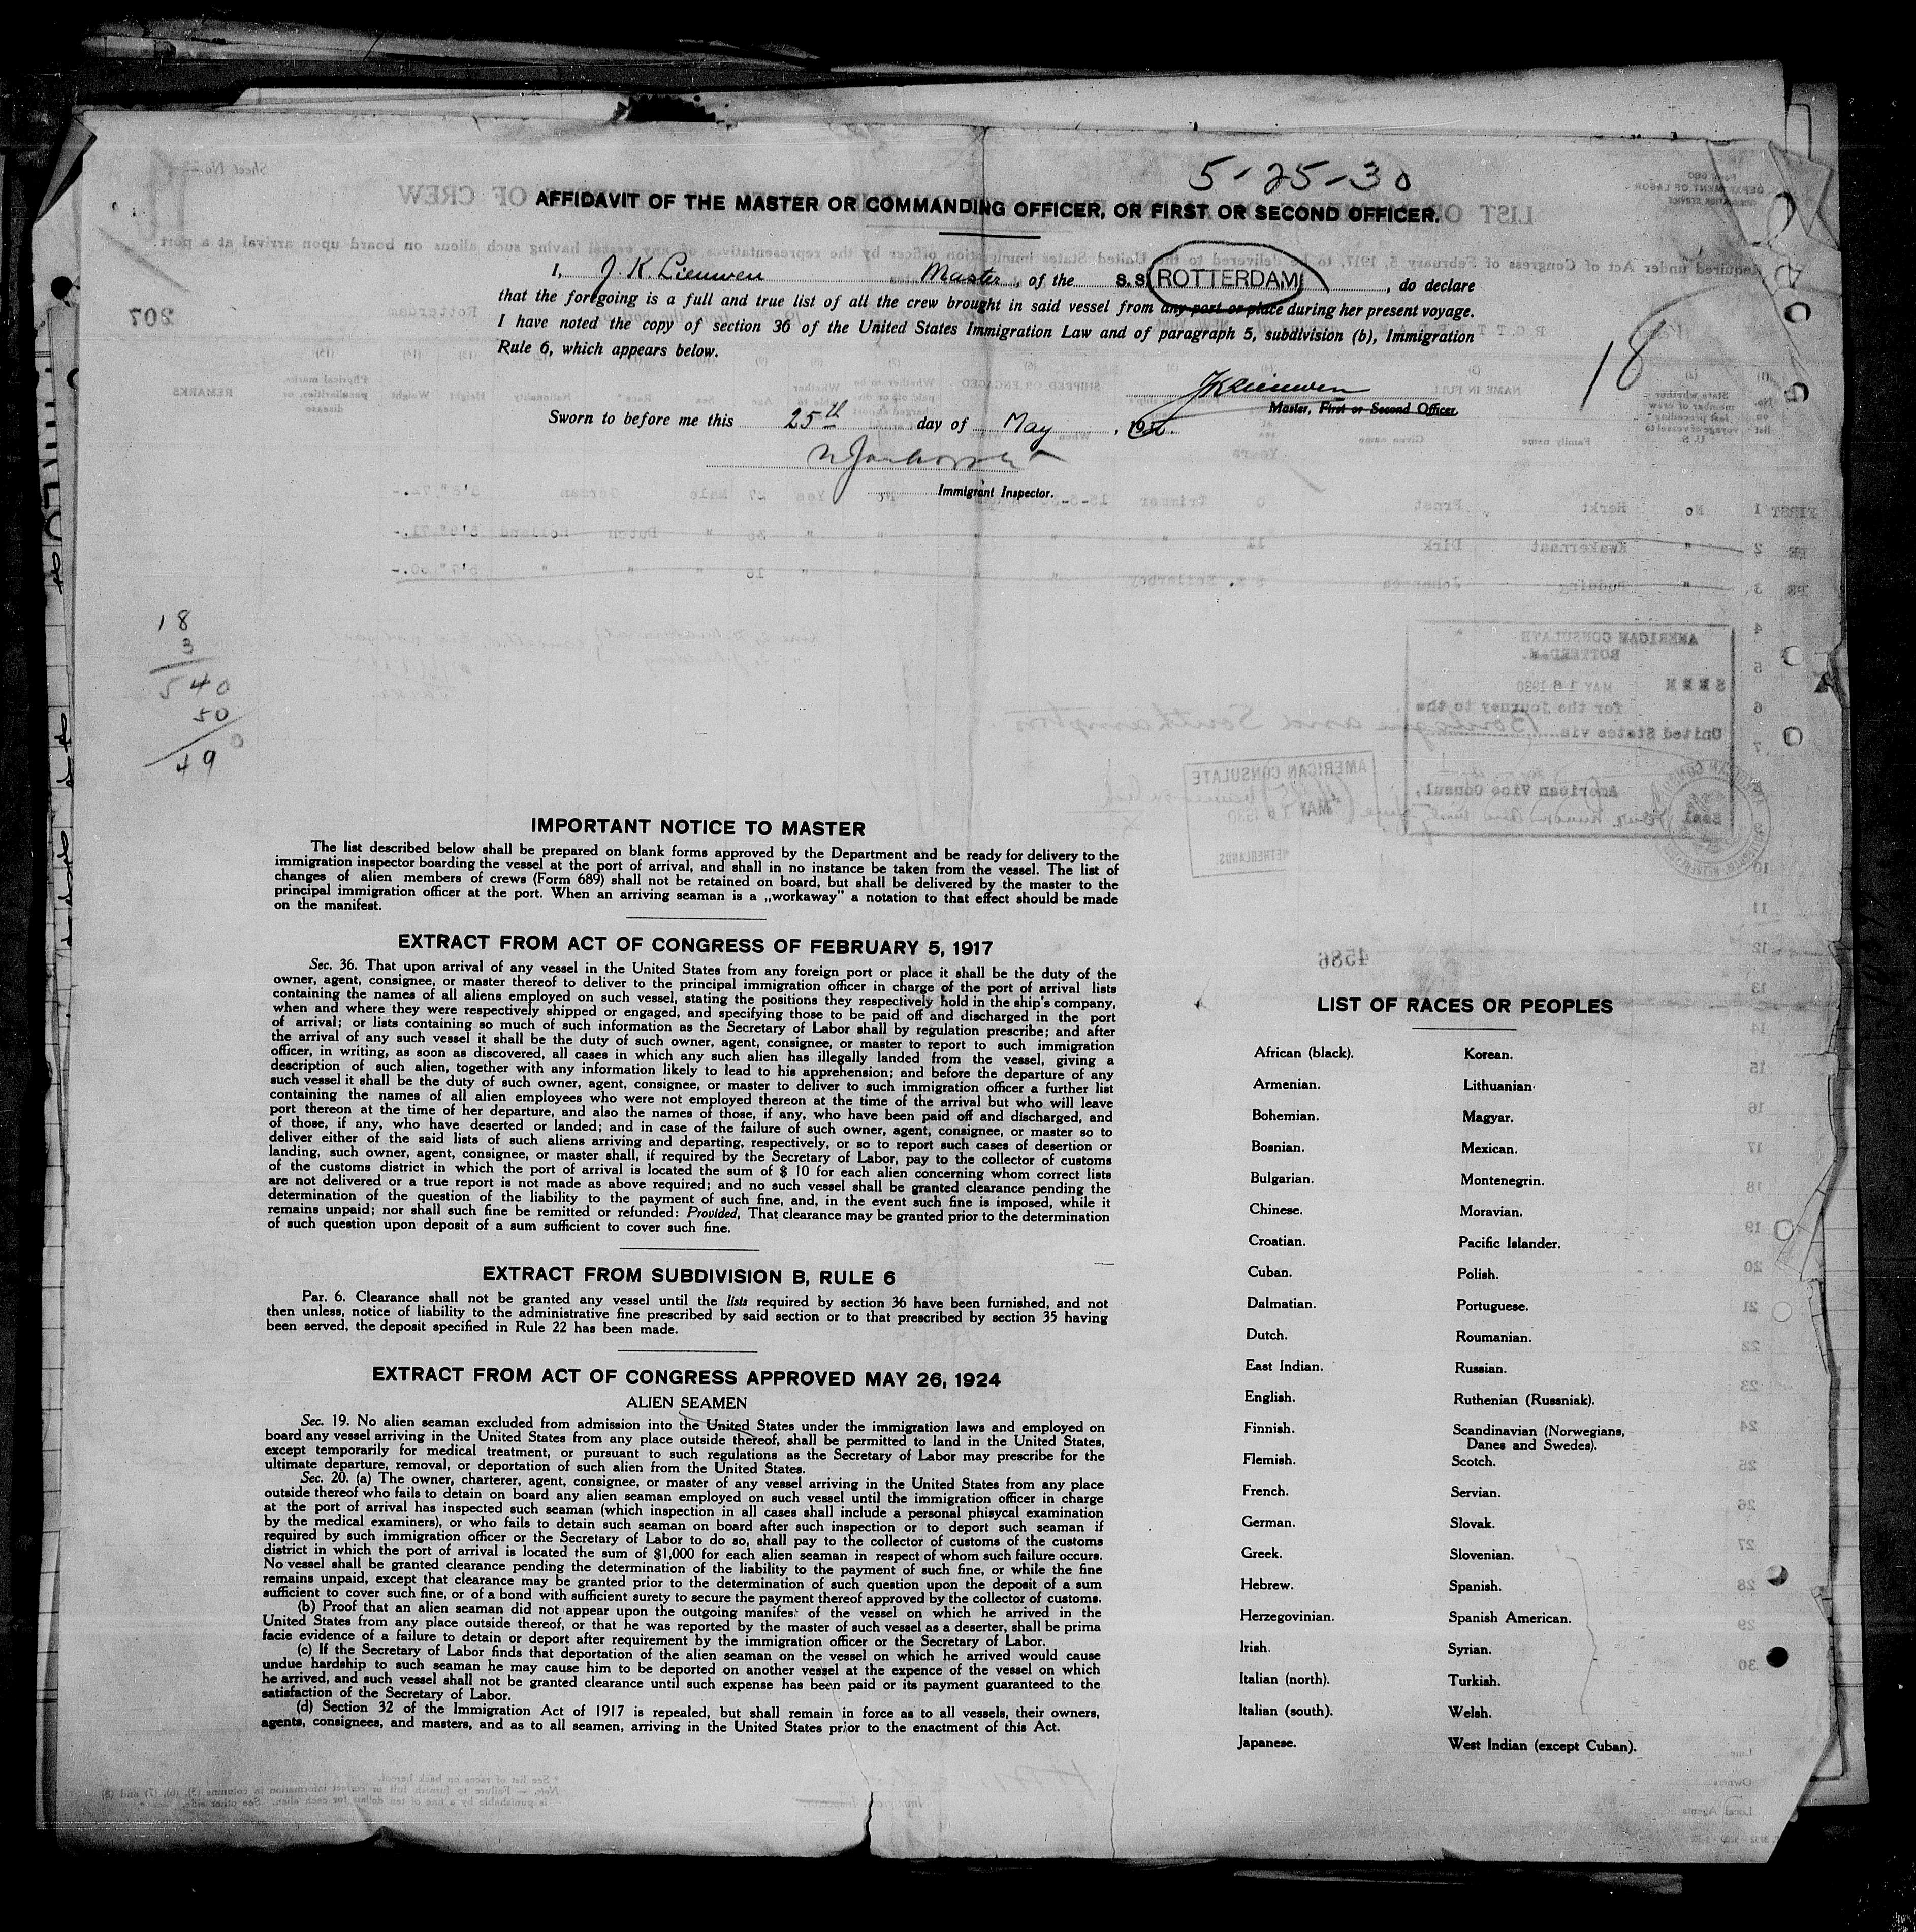 5-25-30
AFFIDAVIT OF THE MASTER OR COMMANDING OFFICER, OR FIRST OR SECOND OFFICER.
I, J. K. Lieuwen Master, of the S.S. ROTTERDAM, do declare
that the foregoing is a full and true list of all the crew brought in said vessel from any port or place during her present voyage.
I have noted the copy of section 36 of the United States Immigration Law and of paragraph 5, subdivision (b), Immigration
Rule 6, which appears below.
18
JKLieuwen
Master, First or Second Officer.
Sworn to before me this 25th day of May, 1930.
Immigrant Inspector.
207
18
3
540
50
490
IMPORTANT NOTICE TO MASTER
The list described below shall be prepared on blank forms approved by the Department and be ready for delivery to the
immigration inspector boarding the vessel at the port of arrival, and shall in no instance be taken from the vessel. The list of
changes of alien members of crews (Form 689) shall not be retained on board, but shall be delivered by the master to the
principal immigration officer at the port. When an arriving seaman is a „workaway" a notation to that effect should be made
on the manifest.
EXTRACT FROM ACT OF CONGRESS OF FEBRUARY 5, 1917
Sec. 36. That upon arrival of any vessel in the United States from any foreign port or place it shall be the duty of the
owner, agent, consignee, or master thereof to deliver to the principal immigration officer in charge of the port of arrival lists
containing the names of all aliens employed on such vessel, stating the positions they respectively hold in the ship's company,
when and where they were respectively shipped or engaged, and specifying those to be paid off and discharged in the port
of arrival; or lists containing so much of such information as the Secretary of Labor shall by regulation prescribe; and after
the arrival of any such vessel it shall be the duty of such owner, agent, consignee, or master to report to such immigration
officer, in writing, as soon as discovered, all cases in which any such alien has illegally landed from the vessel, giving a
description of such alien, together with any information likely to lead to his apprehension; and before the departure of any
such vessel it shall be the duty of such owner, agent, consignee, or master to deliver to such immigration officer a further list
containing the names of all alien employees who were not employed thereon at the time of the arrival but who will leave
port thereon at the time of her departure, and also the names of those, if any, who have been paid off and discharged, and
of those, if any, who have deserted or landed; and in case of the failure of such owner, agent, consignee, or master so to
deliver either of the said lists of such aliens arriving and departing, respectively, or so to report such cases of desertion or
landing, such owner, agent, consignee, or master shall, if required by the Secretary of Labor, pay to the collector of customs
of the customs district in which the port of arrival is located the sum of $ 10 for each alien concerning whom correct lists
are not delivered or a true report is not made as above required; and no such vessel shall be granted clearance pending the
determination of the question of the liability to the payment of such fine, and, in the event such fine is imposed, while it
remains unpaid; nor shall such fine be remitted or refunded: Provided, That clearance may be granted prior to the determination
of such question upon deposit of a sum sufficient to cover such fine.
EXTRACT FROM SUBDIVISION B, RULE 6
Par. 6. Clearance shall not be granted any vessel until the lists required by section 36 have been furnished, and not
then unless, notice of liability to the administrative fine prescribed by said section or to that prescribed by section 35 having
been served, the deposit specified in Rule 22 has been made.
EXTRACT FROM ACT OF CONGRESS APPROVED MAY 26, 1924
ALIEN SEAMEN
Sec. 19. No alien seaman excluded from admission into the United States under the immigration laws and employed on
board any vessel arriving in the United States from any place outside thereof, shall be permitted to land in the United States,
except temporarily for medical treatment, or pursuant to such regulations as the Secretary of Labor may prescribe for the
ultimate departure, removal, or deportation of such alien from the United States.
Sec. 20. (a) The owner, charterer, agent, consignee, or master of any vessel arriving in the United States from any place
outside thereof who fails to detain on board any alien seaman employed on such vessel until the immigration officer in charge
at the port of arrival has inspected such seaman (which inspection in all cases shall include a personal phisycal examination
by the medical examiners), or who fails to detain such seaman on board after such inspection or to deport such seaman if
required by such immigration officer or the Secretary of Labor to do so, shall pay to the collector of customs of the customs
district in which the port of arrival is located the sum of $1,000 for each alien seaman in respect of whom such failure occurs.
No vessel shall be granted clearance pending the determination of the liability to the payment of such fine, or while the fine
remains unpaid, except that clearance may be granted prior to the determination of such question upon the deposit of a sum
sufficient to cover such fine, or of a bond with sufficient surety to secure the payment thereof approved by the collector of customs.
(b) Proof that an alien seaman did not appear upon the outgoing manifest of the vessel on which he arrived in the
United States from any place outside thereof, or that he was reported by the master of such vessel as a deserter, shall be prima
facie evidence of a failure to detain or deport after requirement by the immigration officer or the Secretary of Labor.
(c) If the Secretary of Labor finds that deportation of the alien seaman on the vessel on which he arrived would cause
undue hardship to such seaman he may cause him to be deported on another vessel at the expence of the vessel on which
he arrived, and such vessel shall not be granted clearance until such expense has been paid or its payment guaranteed to the
satisfaction of the Secretary of Labor.
(d) Section 32 of the Immigration Act of 1917 is repealed, but shall remain in force as to all vessels, their owners,
agents, consignees, and masters, and as to all seamen, arriving in the United States prior to the enactment of this Act.
LIST OF RACES OR PEOPLES
African (black).
Armenian.
Bohemian.
Bosnian.
Bulgarian.
Chinese.
Croatian.
Cuban.
Dalmatian.
Dutch.
East Indian.
English.
Finnish.
Flemish.
French.
German.
Greek.
Hebrew.
Herzegovinian.
Irish.
Italian (north).
Italian (south).
Japanese.
Korean.
Lithuanian.
Magyar.
Mexican.
Montenegrin.
Moravian.
Pacific Islander.
Polish.
Portuguese.
Roumanian.
Russian.
Ruthenian (Russniak).
Scandinavian (Norwegians,
Danes and Swedes).
Scotch.
Servian.
Slovak.
Slovenian.
Spanish.
Spanish American.
Syrian.
Turkish.
Welsh.
West Indian (except Cuban).